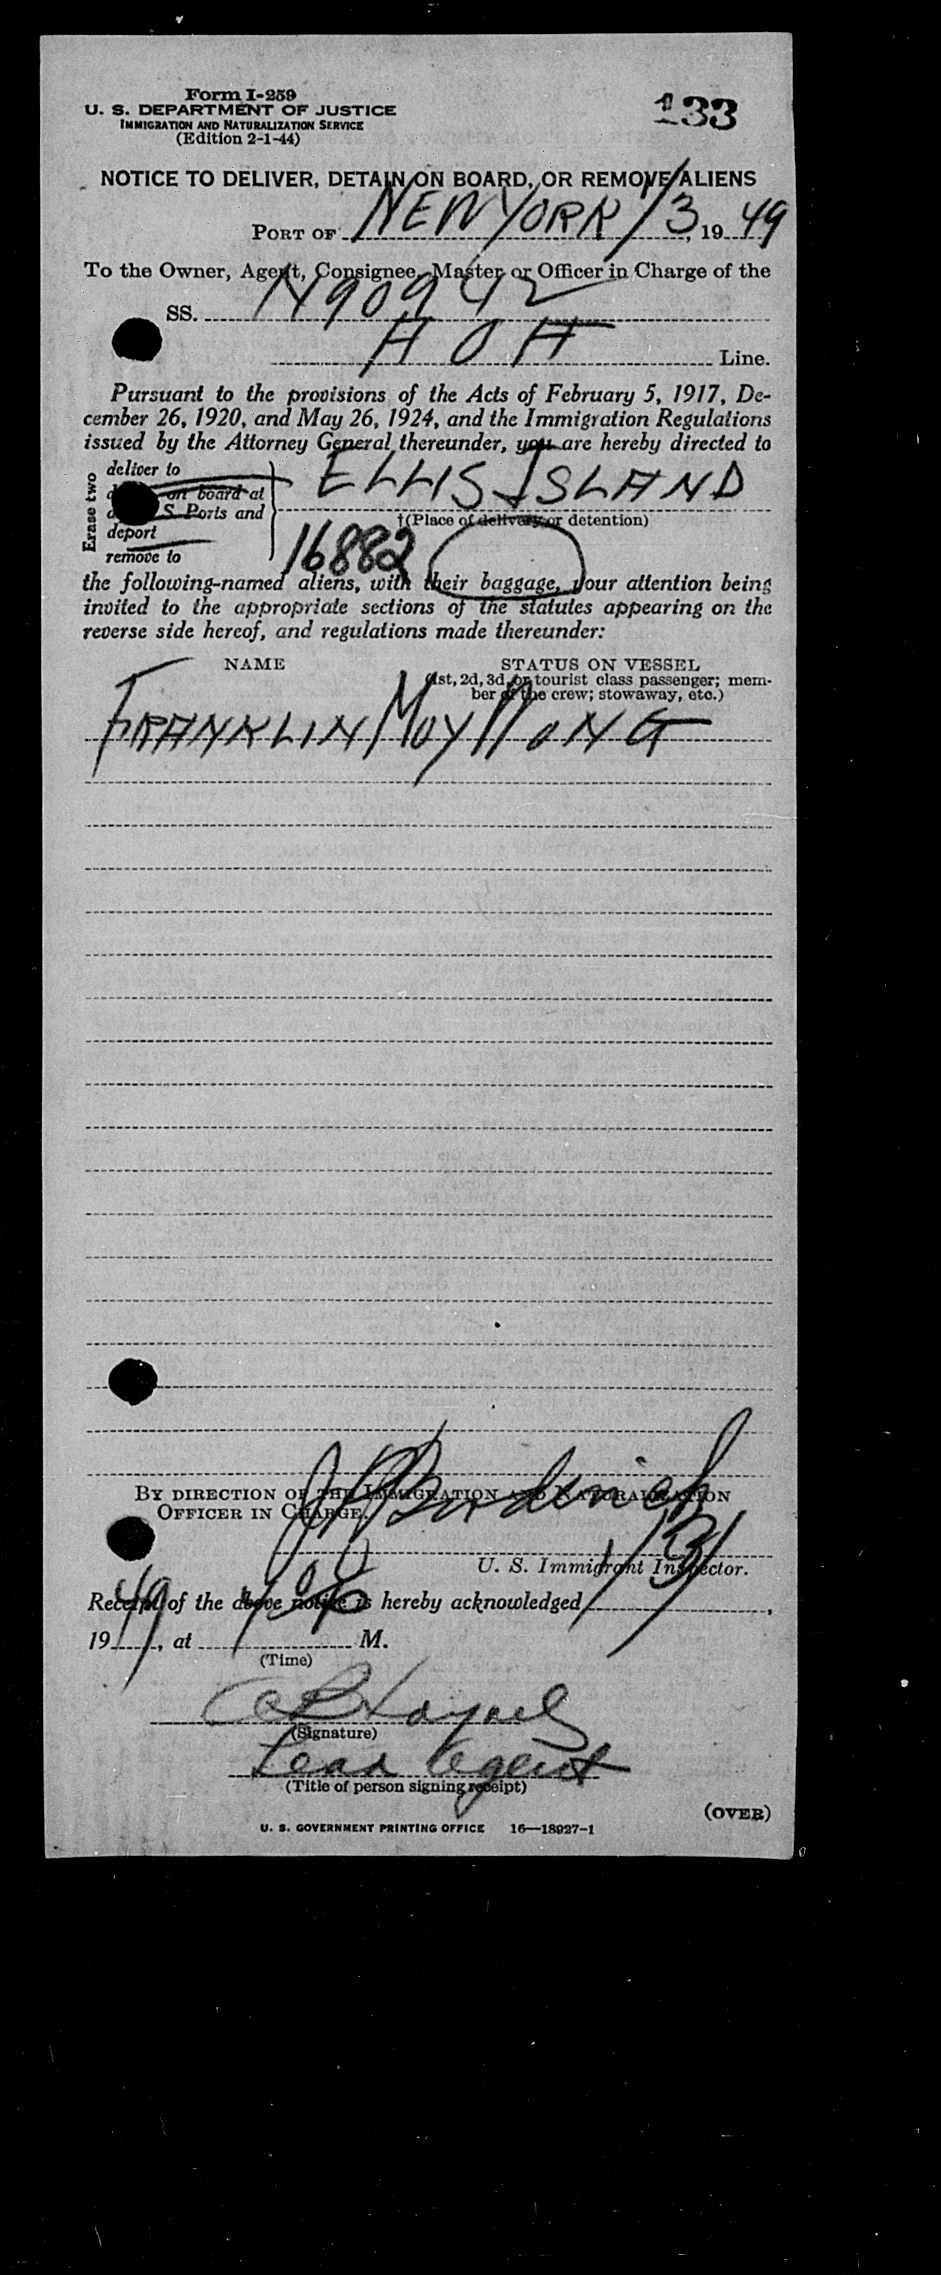 Form I-259
U. S. DEPARTMENT OF JUSTICE
IMMIGRATION AND NATURALIZATION SERVICE
(Edition 2-1-44)
133
NOTICE TO DELIVER, DETAIN ON BOARD, OR REMOVE ALIENS
PORT OF NEW YORK 1/3, 1949
To the Owner, Agent, Consignee, Master or Officer in Charge of the
SS. N90942
A O A Line.
Pursuant to the provisions of the Acts of February 5, 1917, De-
cember 26, 1920, and May 26, 1924, and the Immigration Regulations
issued by the Attorney General thereunder, you are hereby directed to
Erase two
deliver to
on board at
S. Ports and
deport
remove to
ELLIS ISLAND
†(Place of delivery or detention)
16882
the following-named aliens, with their baggage, your attention being
invited to the appropriate sections of the statutes appearing on the
reverse side hereof, and regulations made thereunder:
NAME STATUS ON VESSEL
(1st, 2d, 3d, or tourist class passenger; mem-
ber of the crew; stowaway, etc.)
FRANKLIN MOY NONG
BY DIRECTION OF THE IMMIGRATION AND NATURALIZATION
OFFICER IN CHARGE.
U. S. Immigrant Inspector.
Receipt of the above notice is hereby acknowledged 1/3/,
1949, at M.
(Time)
(Signature)
Lead Agent
(Title of person signing receipt)
(OVER)
U. S. GOVERNMENT PRINTING OFFICE 16—18927-1